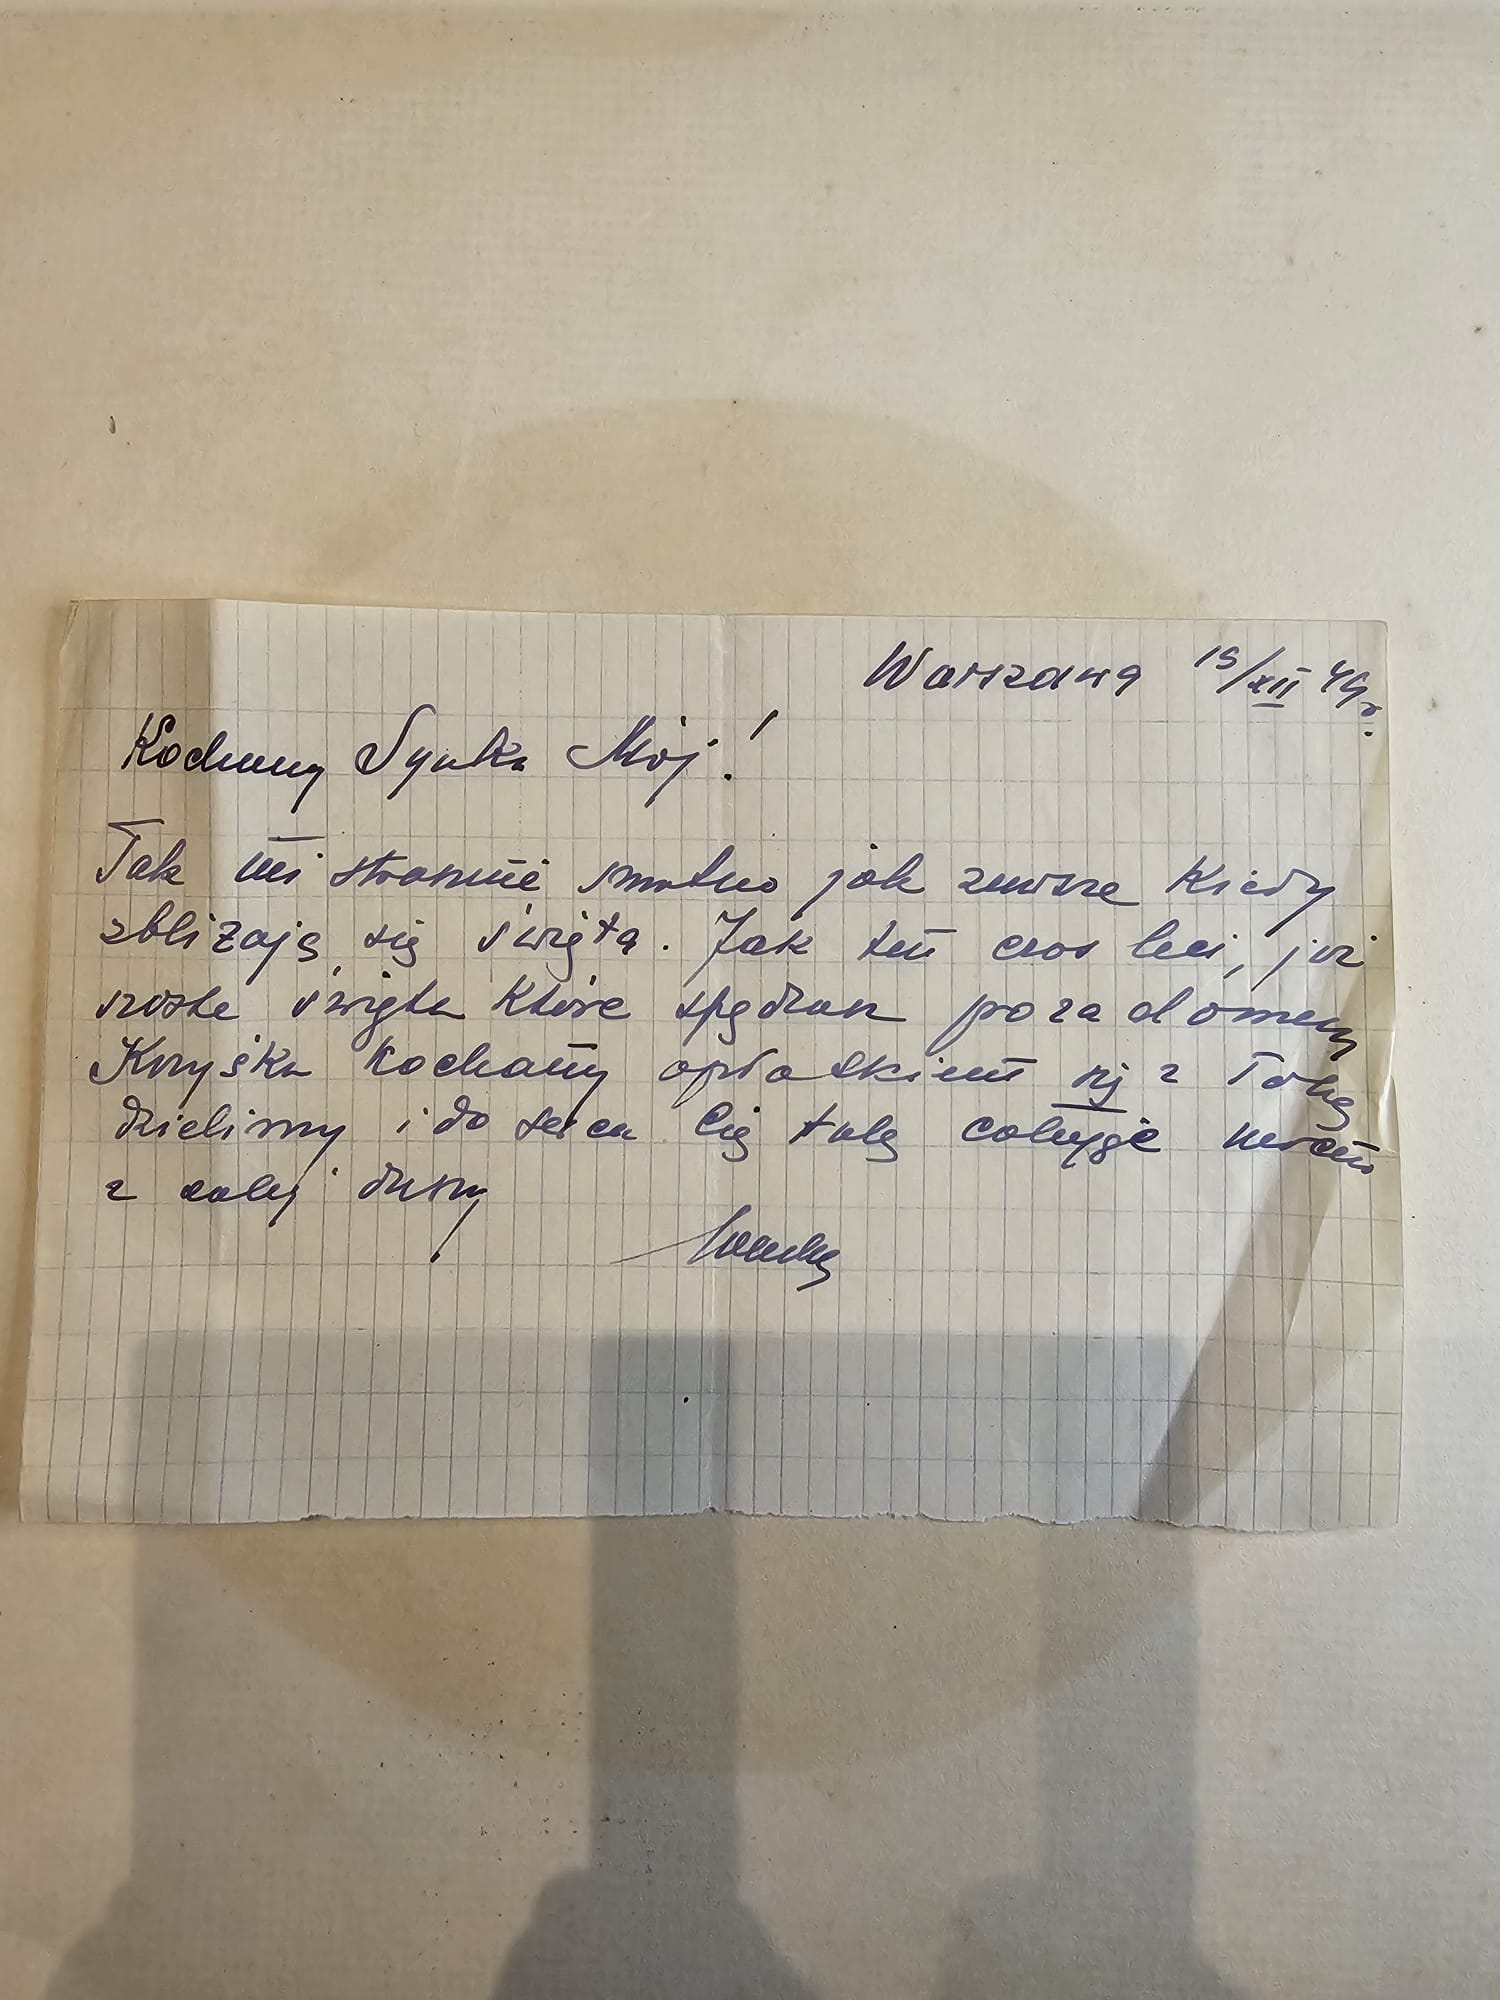 Warszawa 19/XII 49 r.
Kochany Synku Mój!
Tak mi strasznie smutno jak zawsze kiedy
zbliżają się święta. Jak ten czas leci, już
szóste święta które spędzasz poza domem
Kryśku kochany opłatkiem się z Tobą
dzielimy i do serca Cię tulę całuję
z całej duszy